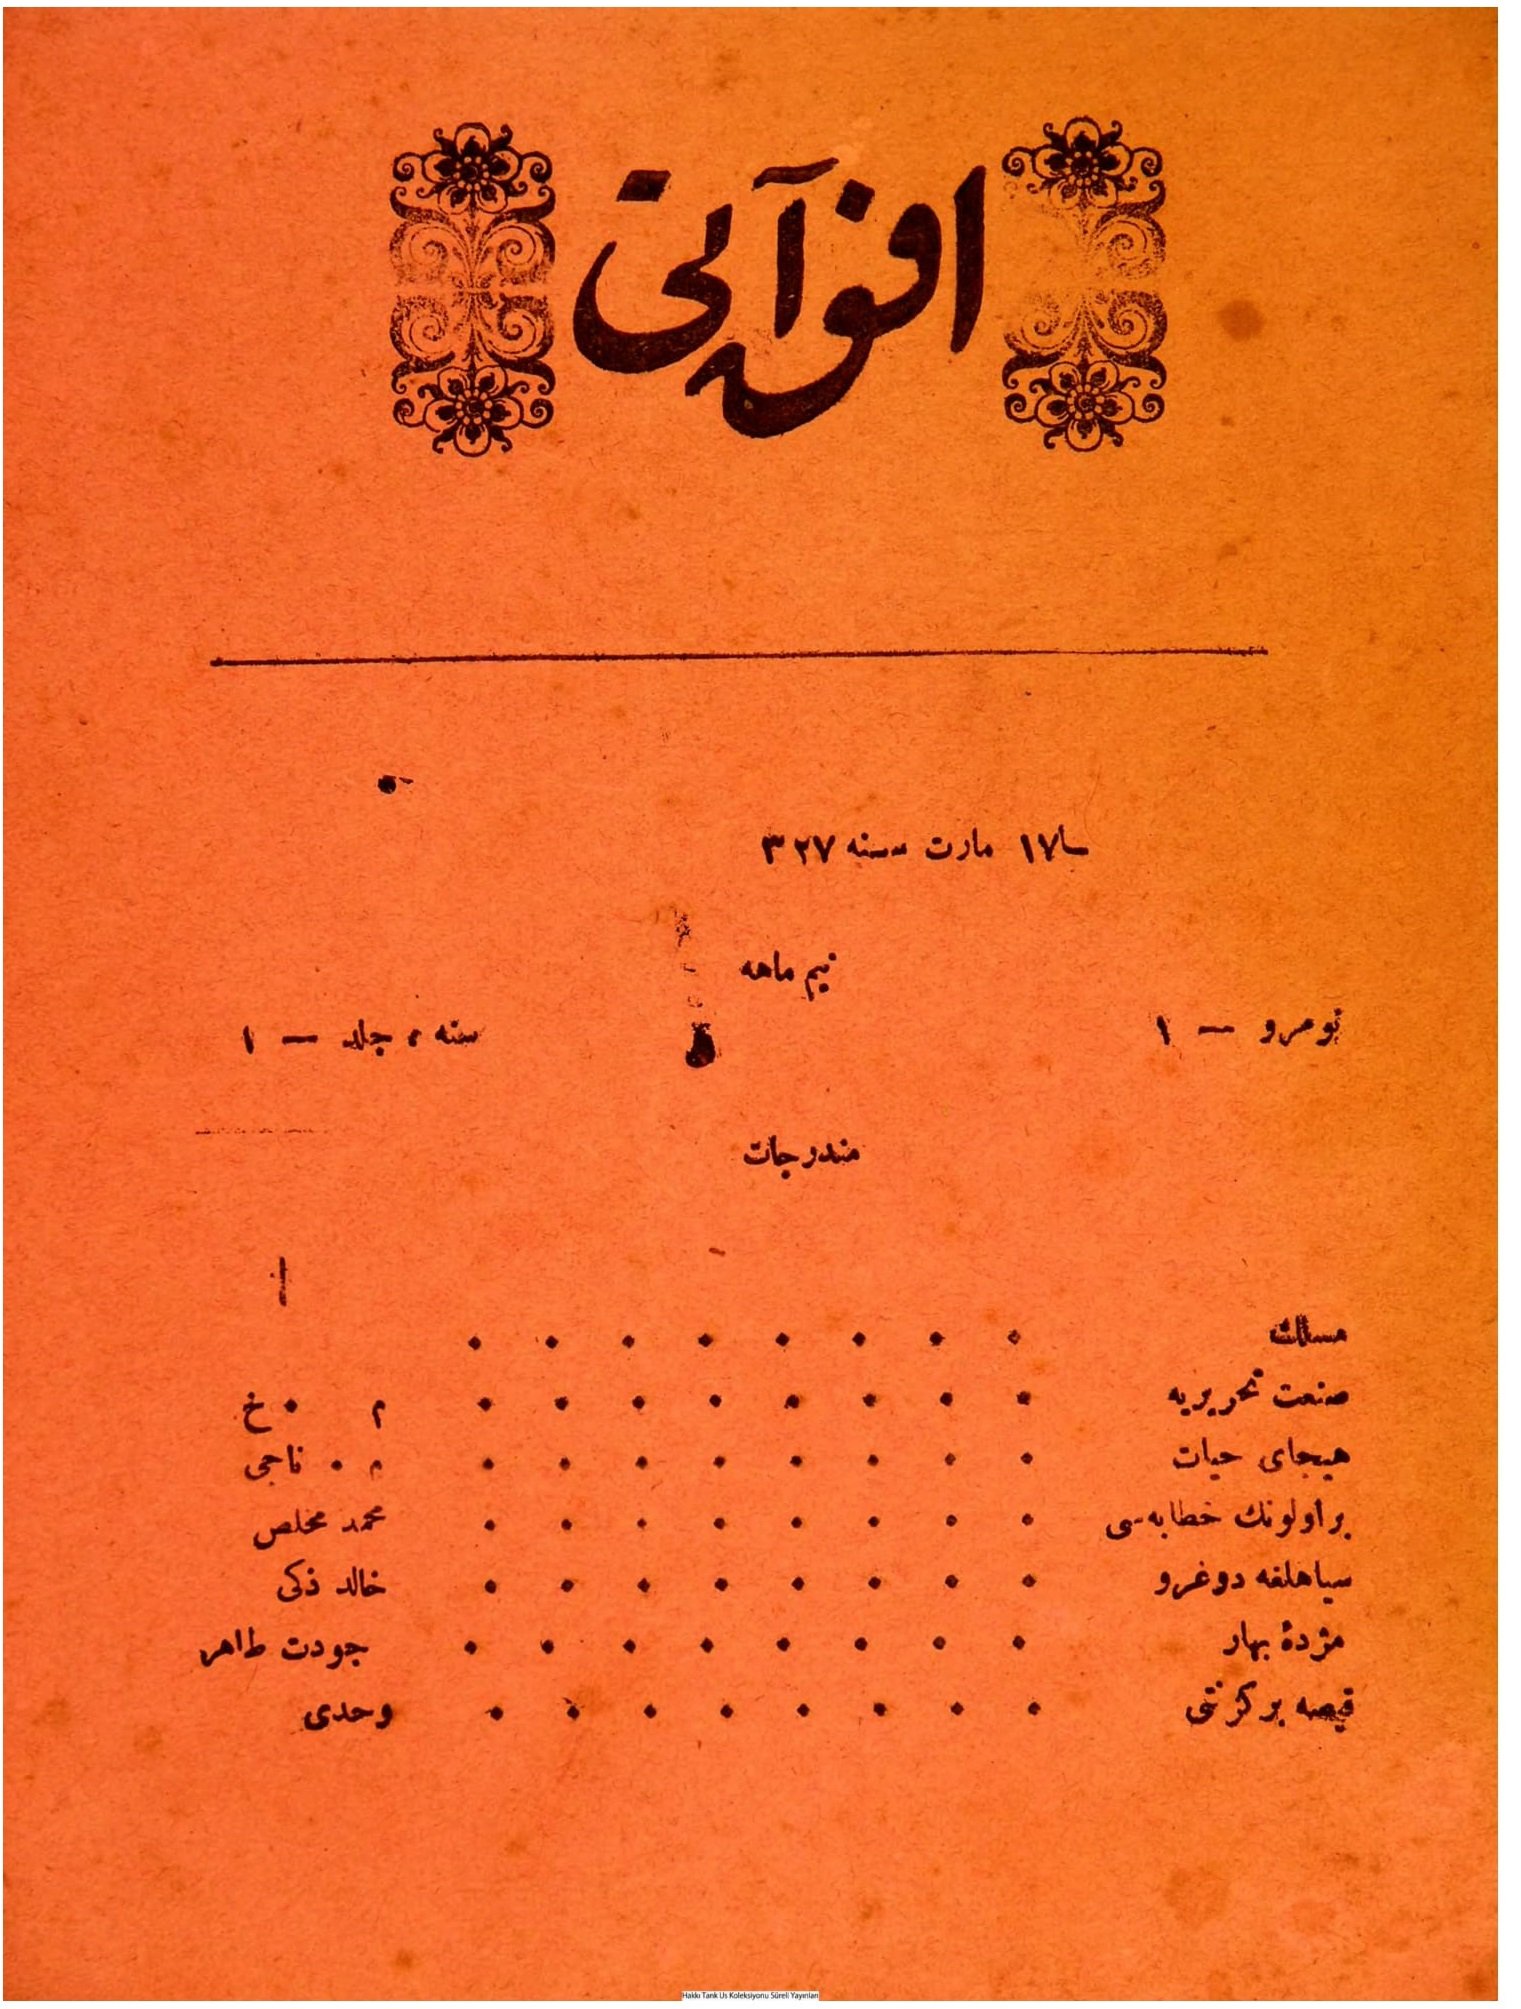 افق آتی
١٧ مارت سنه ٣٢٧
نیم ماهه
نومرو — ١
سنه ، جلد — ١
مندرجات
مسلك
صنعت تحریریه . . . . . . . . م . خ
هیجای حیات . . . . . . . . م . ناجی
بر اولونك خطابه‌سی . . . . . . . . محمد مخلص
سیاهلغه دوغرو . . . . . . . . خالد ذکی
مژدهٔ بهار . . . . . . . . جودت طاهر
بر . . . . . . . . وحدی
Hakkı Tarık Us Koleksiyonu Süreli Yayınları